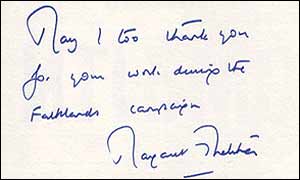 May I too thank you
for your work during the
Falklands campaign
Margaret Thatcher